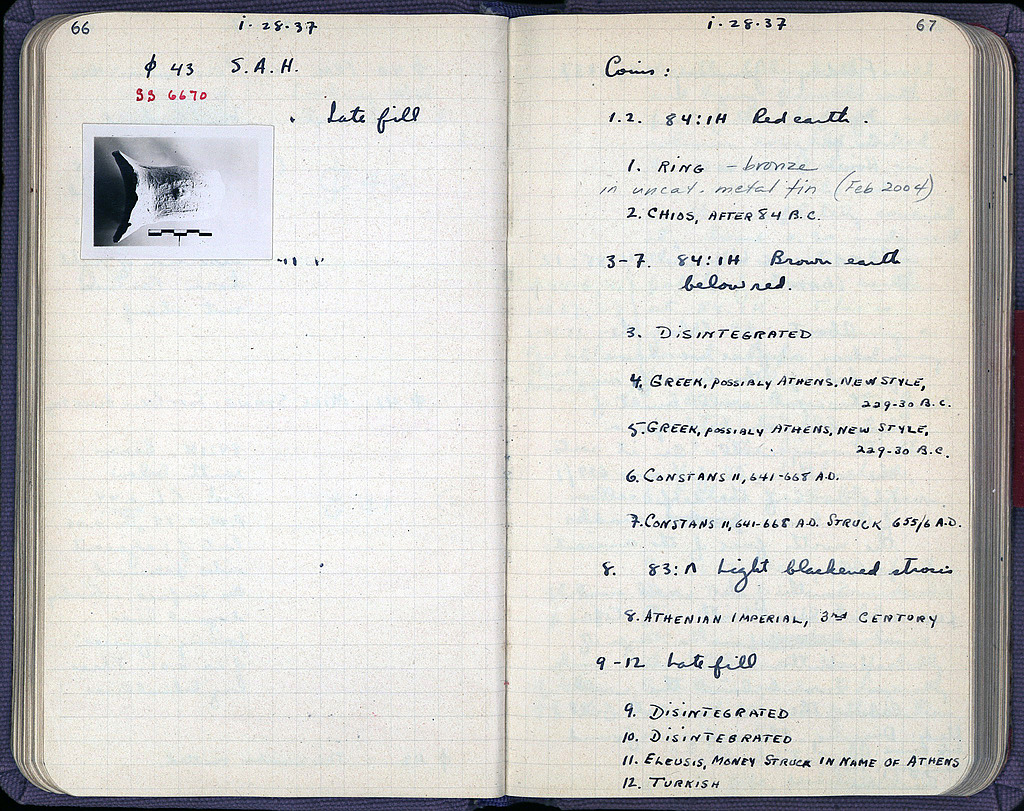 66
i·28·37
φ 43 S.A.H.
SS 6670
Late fill
i·28·37
67
Coins:
1.2. 84:1H Red earth.
1. RING - bronze
in uncat. metal tin (Feb 2004)
2. CHIOS, AFTER 84 B.C.
3-7. 84:1H Brown earth
below red.
3. DISINTEGRATED
4. GREEK, POSSIBLY ATHENS, NEW STYLE,
229-30 B.C.
5. GREEK, POSSIBLY ATHENS, NEW STYLE,
229-30 B.C.
6. CONSTANS II, 641-668 A.D.
7. CONSTANS II, 641-668 A.D. STRUCK 655/6 A.D.
8. 83:Λ Light blackened strosis
8. ATHENIAN IMPERIAL, 3RD CENTORY
9-12 Late fill
9. DISINTEGRATED
10. DISINTEBRATED
11. ELEUSIS, MONEY STRUCK IN NAME OF ATHENS
12. TURKISH